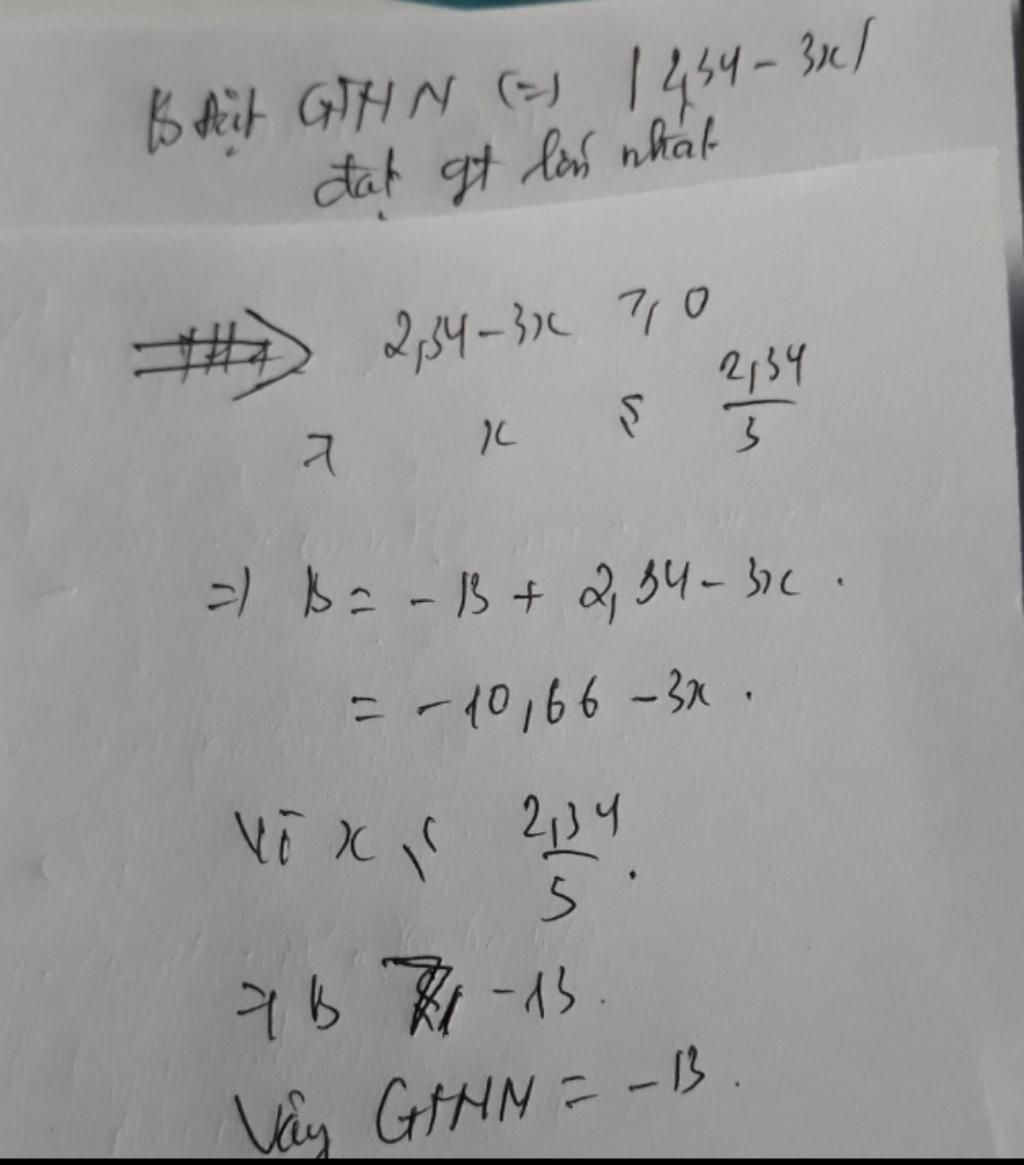 B đạt GTNN (=) | 2,34 - 3x |
đạt gt lớn nhất
=> 2,34 - 3x ≥ 0
=> x ≤ 2,34/3
=> B = - 13 + 2,34 - 3x .
= - 10,66 - 3x .
Vì x ≤ 2,34/3 .
=> B ≥ -13 .
Vậy GTNN = - 13 .